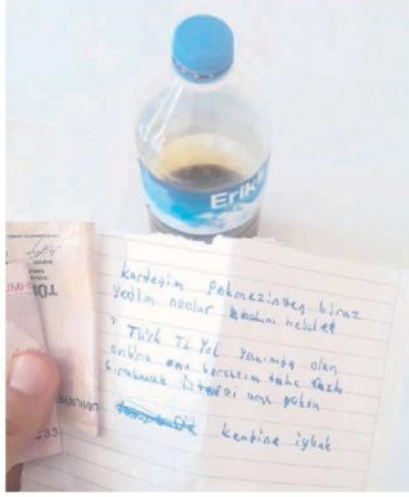 Erik
kardeşim Pekmezinden biraz
yedim noolur hakkını helal et
Türk TL Yol yanımda olan
onu bıraktım daha fazla
bırakmak isterdi ama yoktu
kendine iybak
233